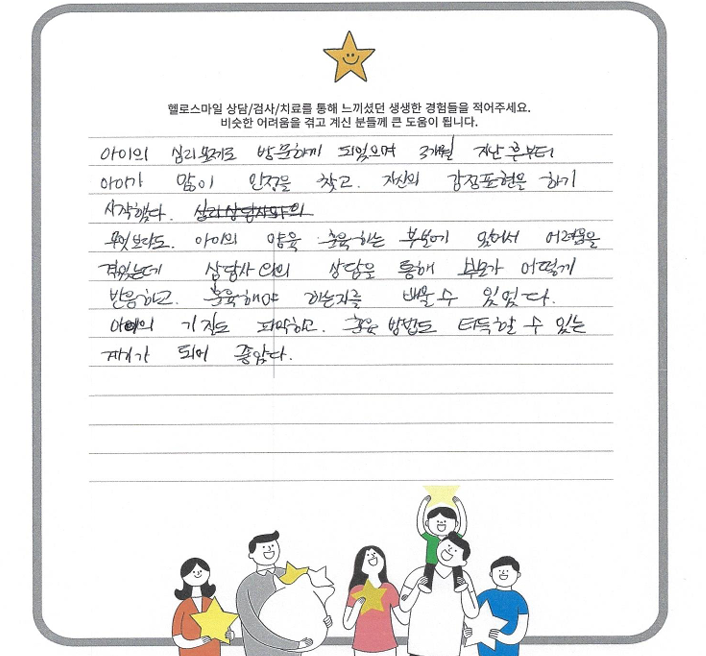 헬로스마일 상담/검사/치료를 통해 느끼셨던 생생한 경험들을 적어주세요.
비슷한 어려움을 겪고 계신 분들께 큰 도움이 됩니다.
아이의 심리문제로 방문하게 되었으며 3개월 지난 후부터
아이가 많이 안정을 찾고. 자신의 감정표현을 하기
시작했다. 심리상담사와의
무엇보다도. 아이의 양육 훈육하는 부분에 있어서 어려움을
겪었는데 상담사와의 상담을 통해 부모가 어떻게
반응하고. 훈육해야 하는지를 배울 수 있었다.
아이의 기질도 파악하고. 훈육 방법도 터득할 수 있는
계기가 되어 좋았다.